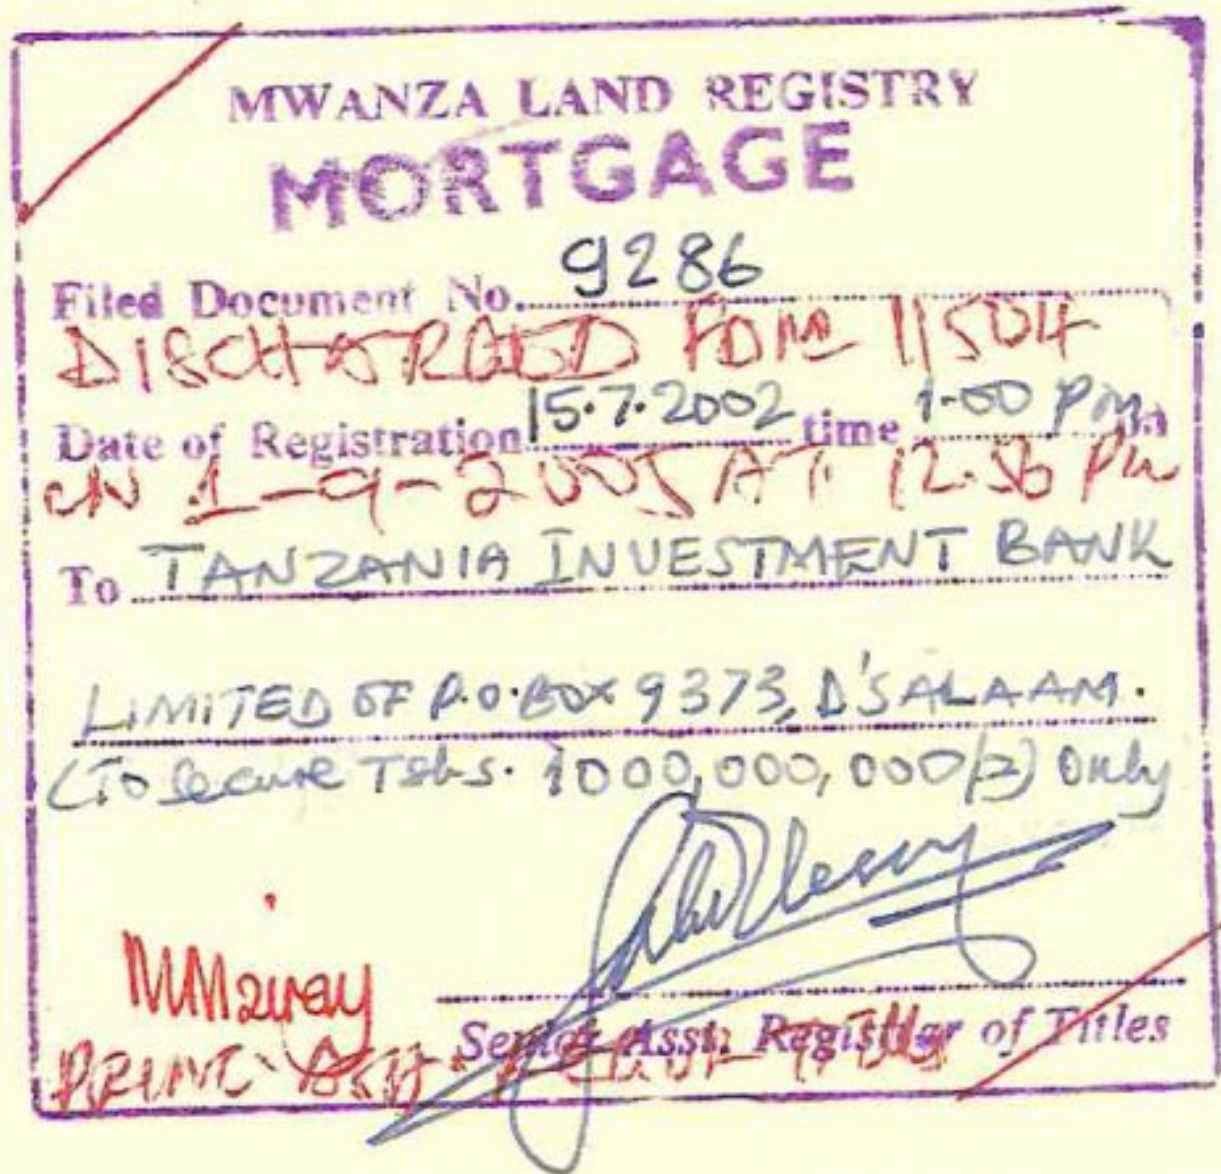 MWANZA LAND REGISTRY
MORTGAGE
Filed Document No. 9286
DISCHARGED FDNo 11504
Date of Registration 15.7.2002 time 1-00 Pm
ON 1-9-2005 AT 12.56 Pm
To TANZANIA INVESTMENT BANK
LIMITED OF P.O.BOX 9373, D'SALAAM.
(To Secure Tshs. 1000,000,000/=) Only
Senior Asst. Registrar of Titles